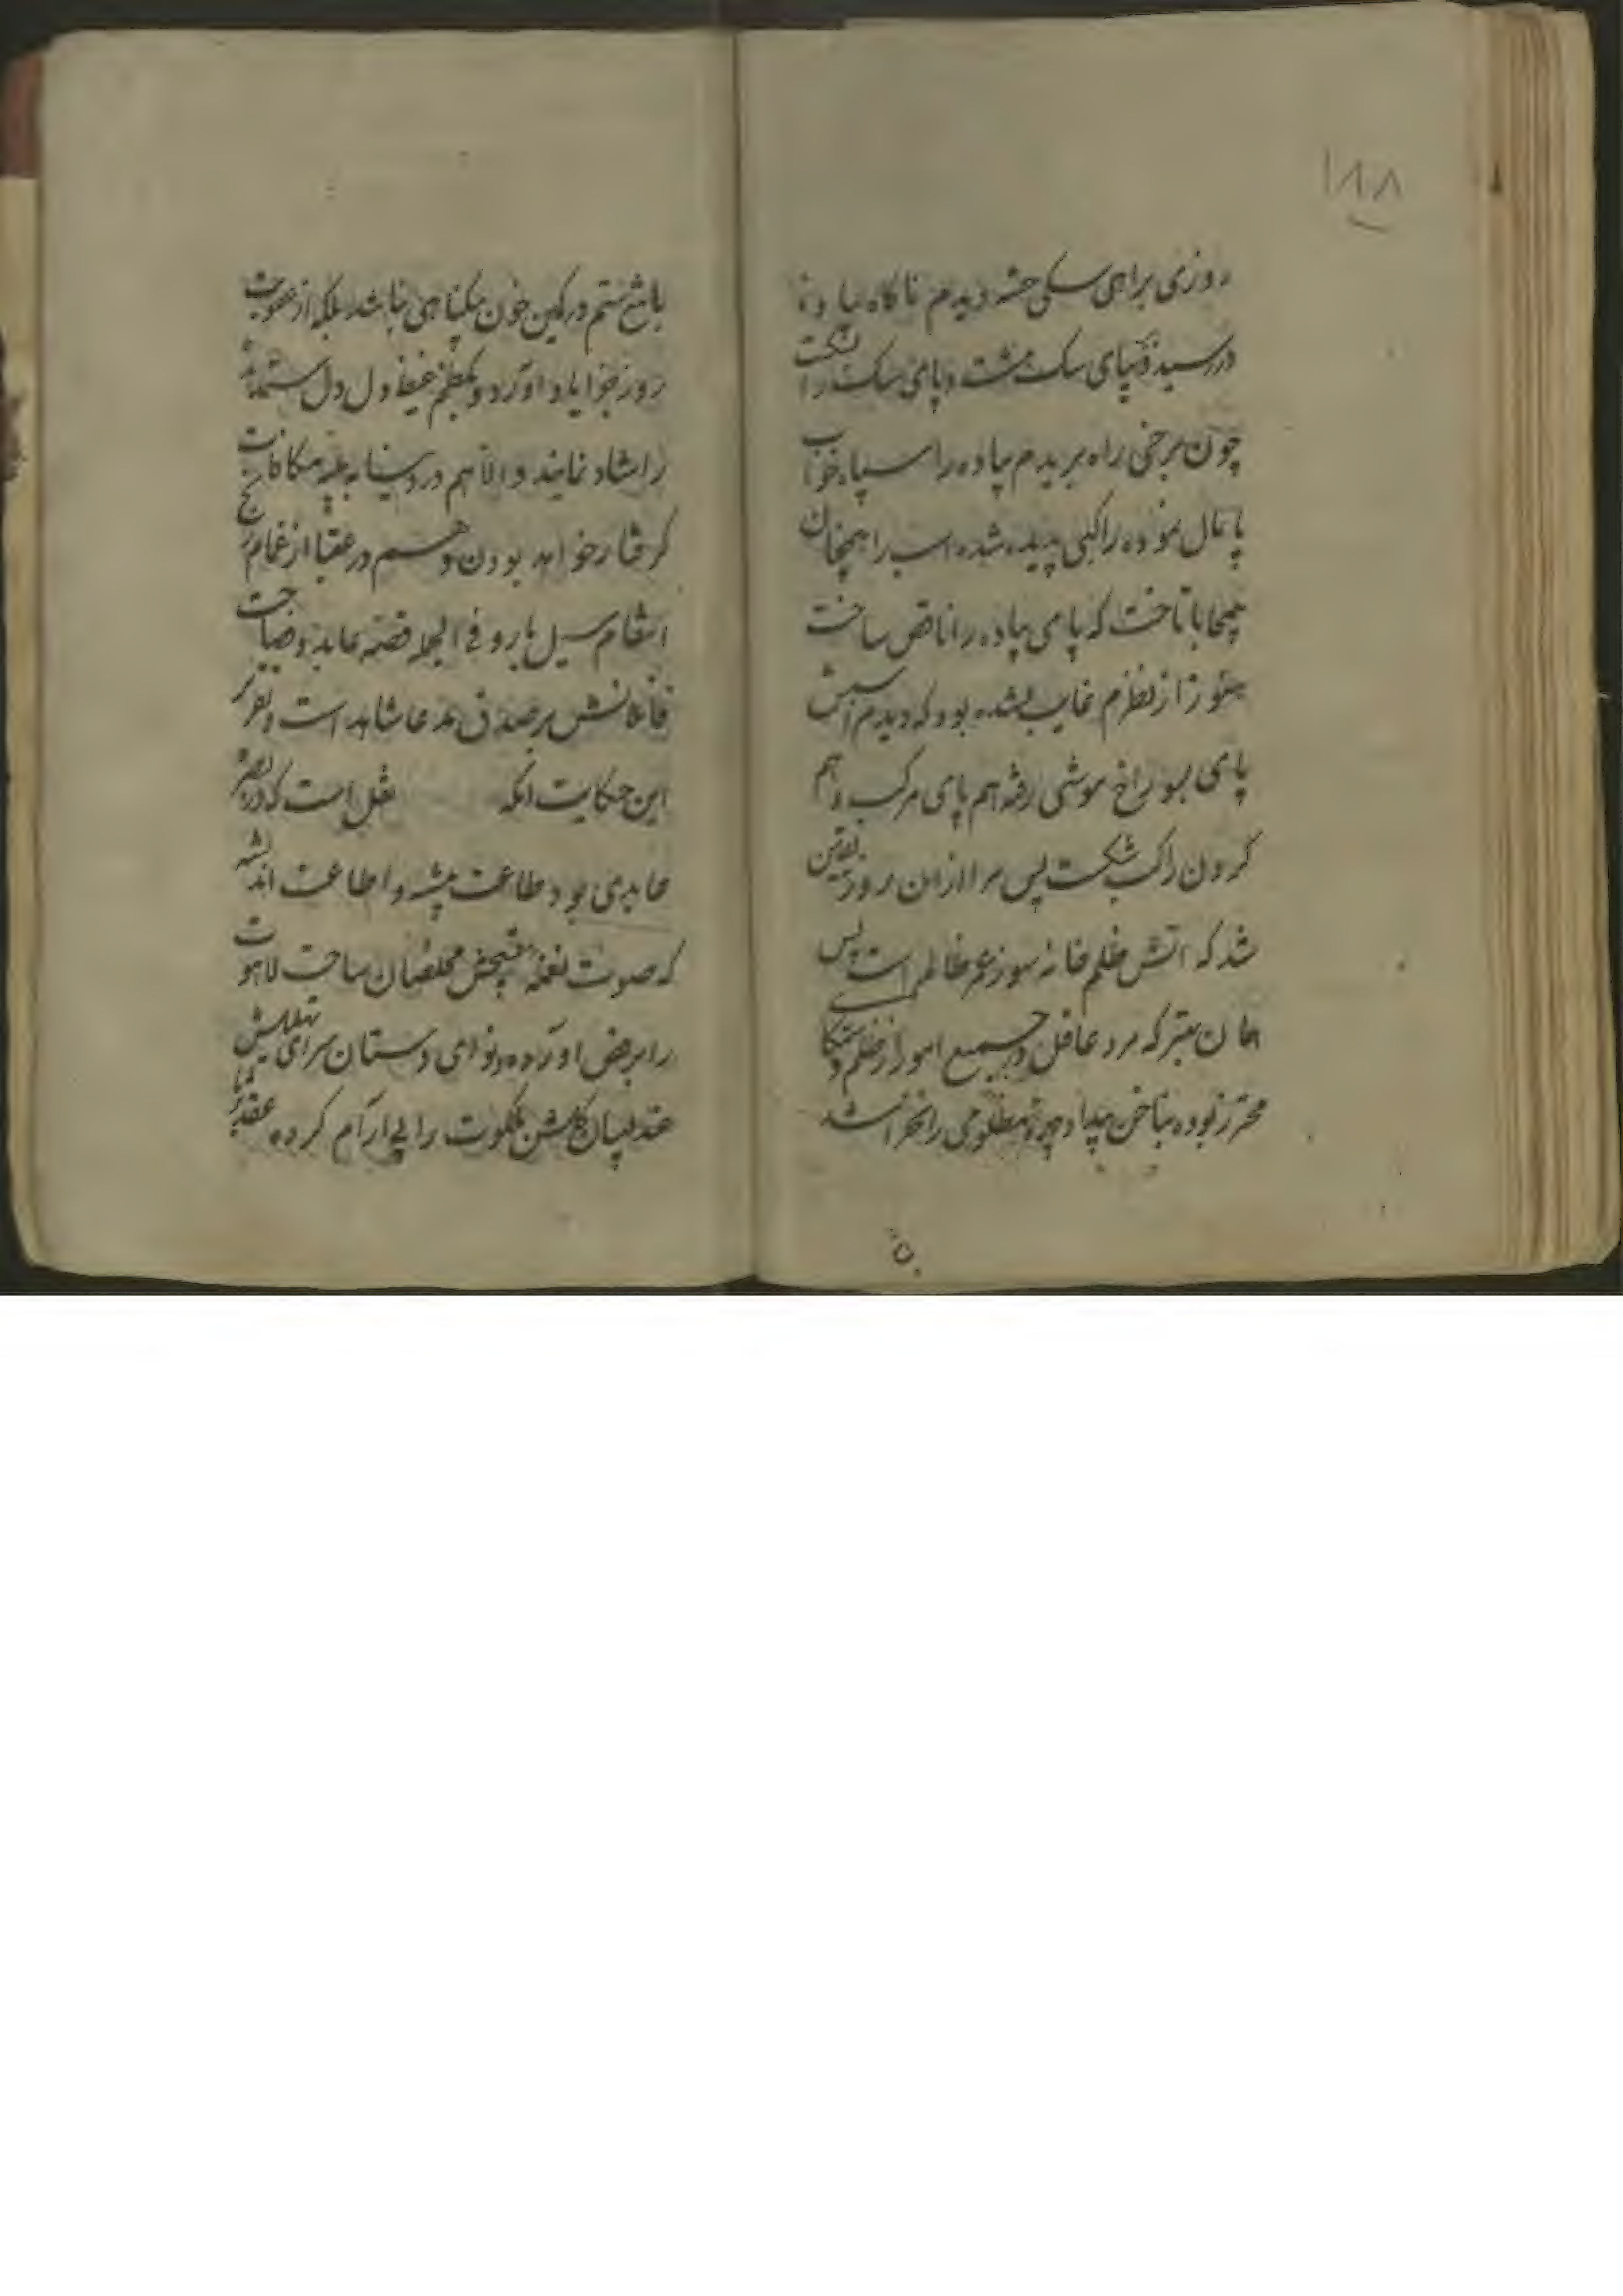 ۱۸۸
روزی براهی سکی خسته دیدم ناکاه پیاده
دررسید و بپای سک مشت و پای سک را شکست
چون برخی راه بریدم پیاده را سپاه خواب
پایمال نموده راکبی پدید شده اسب را همچنان
بیمحابا تاخت که پای پیاده را ناقص ساخت
هنوز از نظرم غایب نشده بود که دیدم اسبش
پای بسوراخ موشی رفته هم پای مرکب و هم
کردن راکب شکست پس مرا ازان روز یقین
شد که اتش ظلم خانه سوز عمر ظالم است پس
همان بهتر که مرد عاقل در جمیع امور از ظلم و ستمکا
محترز بوده بناخن بیداد چهره مظلومی را نخراشد
با تیغ ستم در کمین خون بیکناهی نباشد بلکه از عقوبت
روز جزا یاد اورد و بکظم غیظ دل ستمدیده
را شاد نمایند و الا هم در دنیا به بلیه مکافات
کرفتار خواهد بودن و هم در عقبا از غمام رنج
انتقام سیل بارد فی الجمله قصه عابد و صباحت
قاتلانش بر صدق مدعا شاهد است و تقریر
این حکایت انکه نقل است که در بصره
عابدی بود طاعت پیشه و اطاعت اندیشه
که صوت نغمه مخلصان ساحت لاهوت
را برقص اورده و نوای دستان سرای تهلیلش
عندلیبان کلشن ملکوت را بی ارام کرده